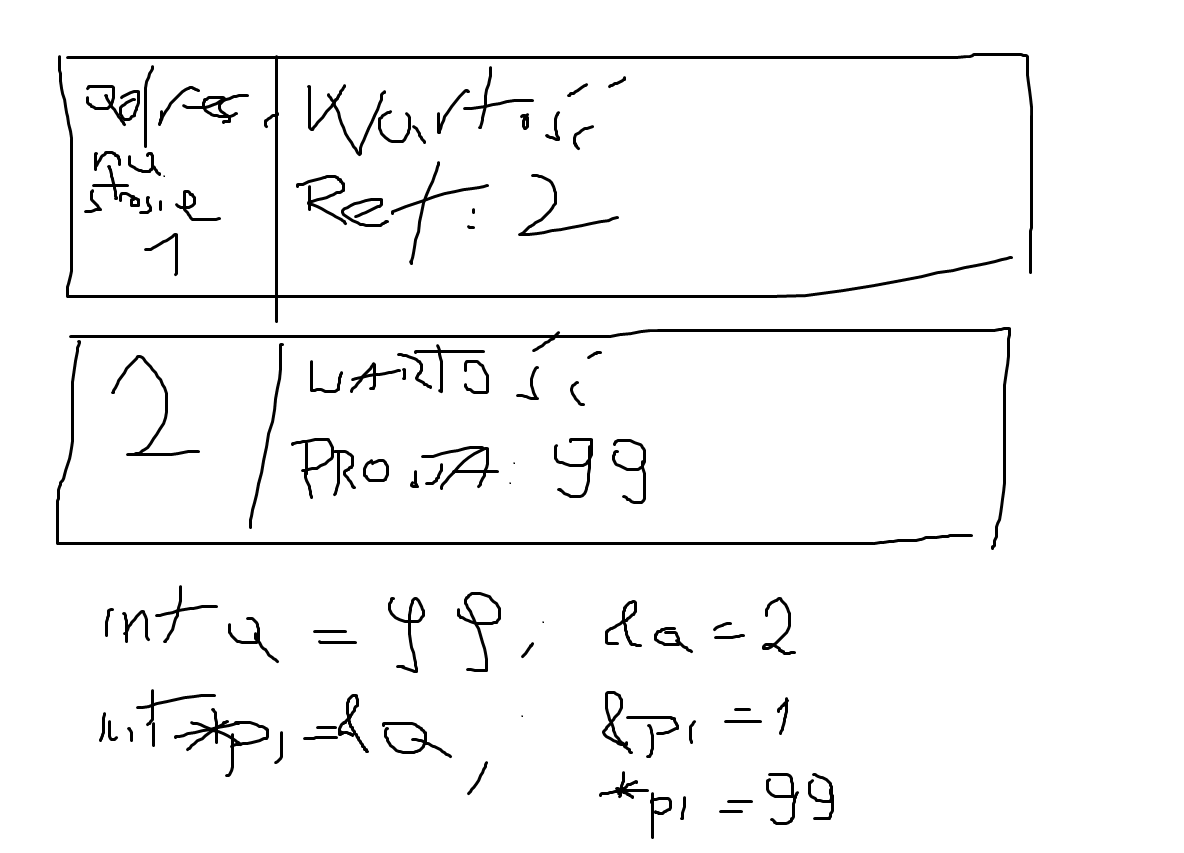 adres.
na
stosie
1
Wartość
Ref: 2
2
WARTOŚĆ
PROSTA: 99
int a = 99; &a = 2
int *p1 = &a; &p1 = 1
*p1 = 99